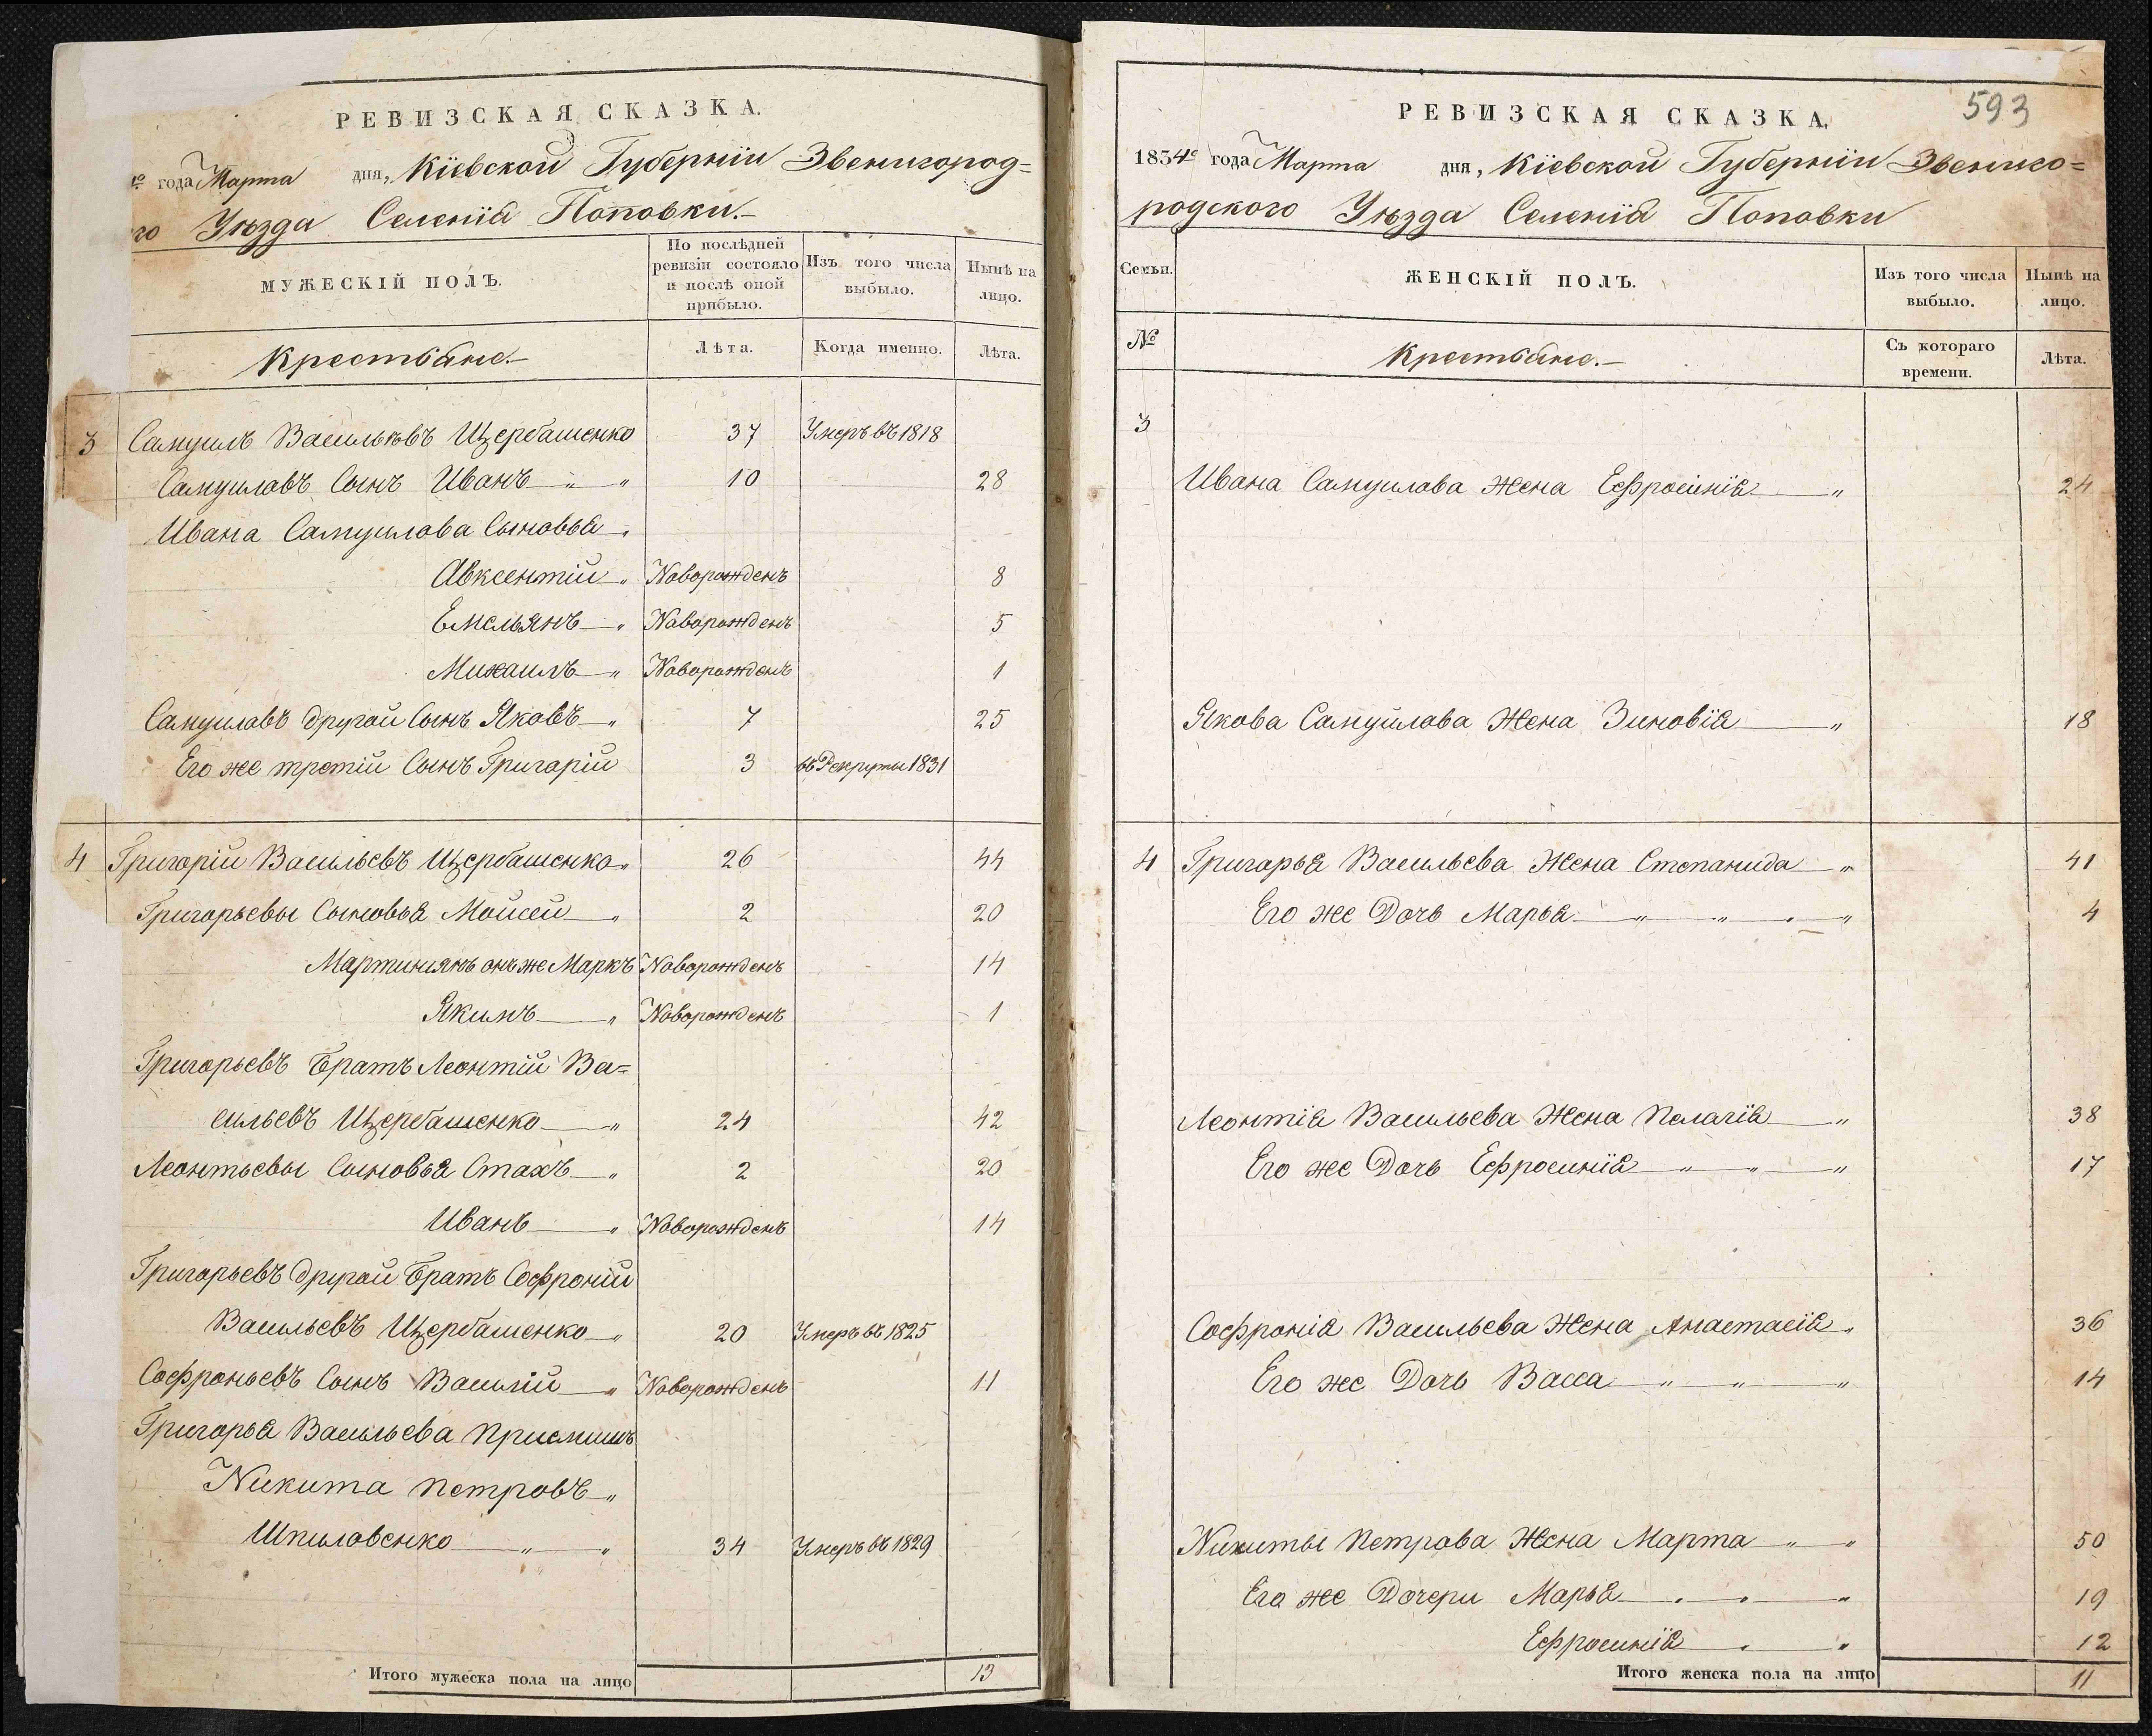 РЕВИЗСКАЯ СКАЗКА.
го года Марта дня, Кіевской Губерніи Звенигород=
го Уѣзда Селенія Поповки.
МУЖЕСКІЙ ПОЛЪ.
По послѣдней ревизіи состояло и послѣ оной прибыло.
Изъ того числа выбыло.
Нынѣ на лицо.
Крестьяне.
Лѣта.
Когда именно.
Лѣта.
3 Самуилъ Васильевъ Щербашенко 37 Умеръ въ 1818
Самуиловъ Сынъ Иванъ " " 10 28
Ивана Самуилова Сыновья "
Авксентій " Новорожденъ 8
Емельянъ " Новорожденъ 5
Михаилъ " Новорожденъ 1
Самуиловъ другой Сынъ Яковъ " 7 25
Его же третій Сынъ Григорій 3 въ Рекруты 1831
4 Григорій Васильевъ Щербашенко " 26 44
Григорьевы Сыновья Мойсей " 2 20
Мартиніянъ онъ же Маркъ Новорожденъ 14
Якимъ " Новорожденъ 1
Григорьевъ Братъ Леонтій Ва=
сильевъ Щербашенко " 24 42
Леонтьевы Сыновья Стахъ " 2 20
Иванъ " Новорожденъ 14
Григорьевъ другой Братъ Софроній
Васильевъ Щербашенко " 20 Умеръ въ 1825
Софроньевъ Сынъ Василій " Новорожденъ 11
Григорья Васильева Приемышъ
Никита Петровъ "
Шпиловенко " " 34 Умеръ въ 1829
Итого мужеска пола на лицо 13
593
РЕВИЗСКАЯ СКАЗКА.
1834го года Марта дня, Кіевской Губерніи Звениго=
родского Уѣзда Селенія Поповки
Семьи.
ЖЕНСКІЙ ПОЛЪ.
Изъ того числа выбыло.
Нынѣ на лицо.
№
Крестьяне.
Съ котораго времени.
Лѣта.
3
Ивана Самуилова Жена Ефросинія " 24
Якова Самуйлова Жена Зиновія " 18
4 Григорья Васильева Жена Степанида " 41
Его же Дочь Марья " " " " 4
Леонтія Васильева Жена Пелагія " 38
Его же Дочь Ефросинія " " " 17
Софронія Васильева Жена Анастасія " 36
Его же Дочь Васса " " " 14
Никиты Петрова Жена Марта " " 50
Его же Дочери Марья " " " 19
Ефросинія " " 12
Итого женска пола на лицо 11